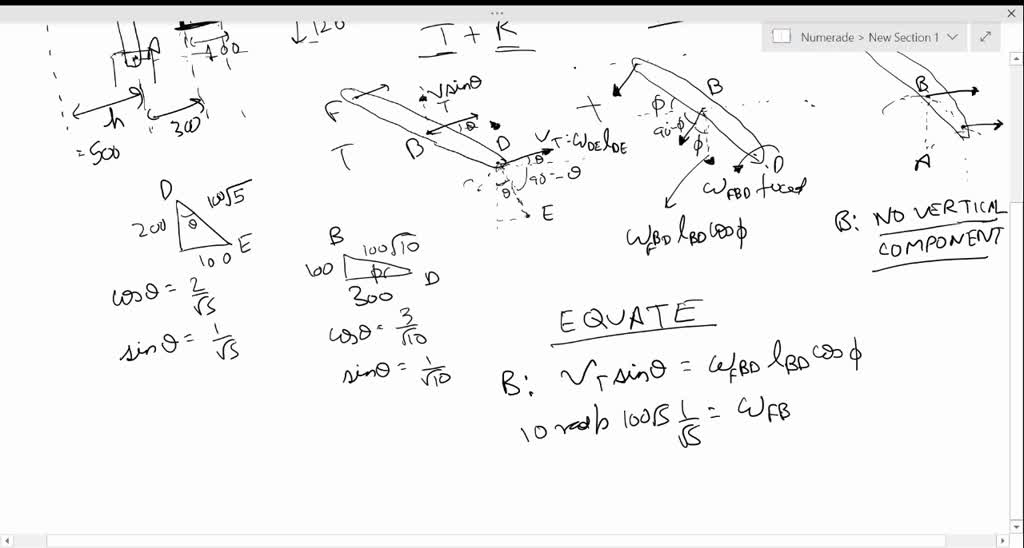 Numerade > New Section 1
↓120
T + R
A
100
h
300
= 500
F
T
V_T sinθ
θ
B
D
V_T = ω_DE l_DE
θ
90-θ
θ
E
+
B
φ
90-φ
φ
D
ω_FBD fixed
ω_FBD l_BD cosφ
B
A
B: NO VERTICAL
COMPONENT
D
100√5
200
θ
E
100
cosθ = 2/√5
sinθ = 1/√5
B
100√10
100
φ
D
300
cosθ = 3/√10
sinθ = 1/√10
EQUATE
B: V_T sinθ = ω_FBD l_BD cosφ
10 rad/s 100√5 1/√5 = ω_FB